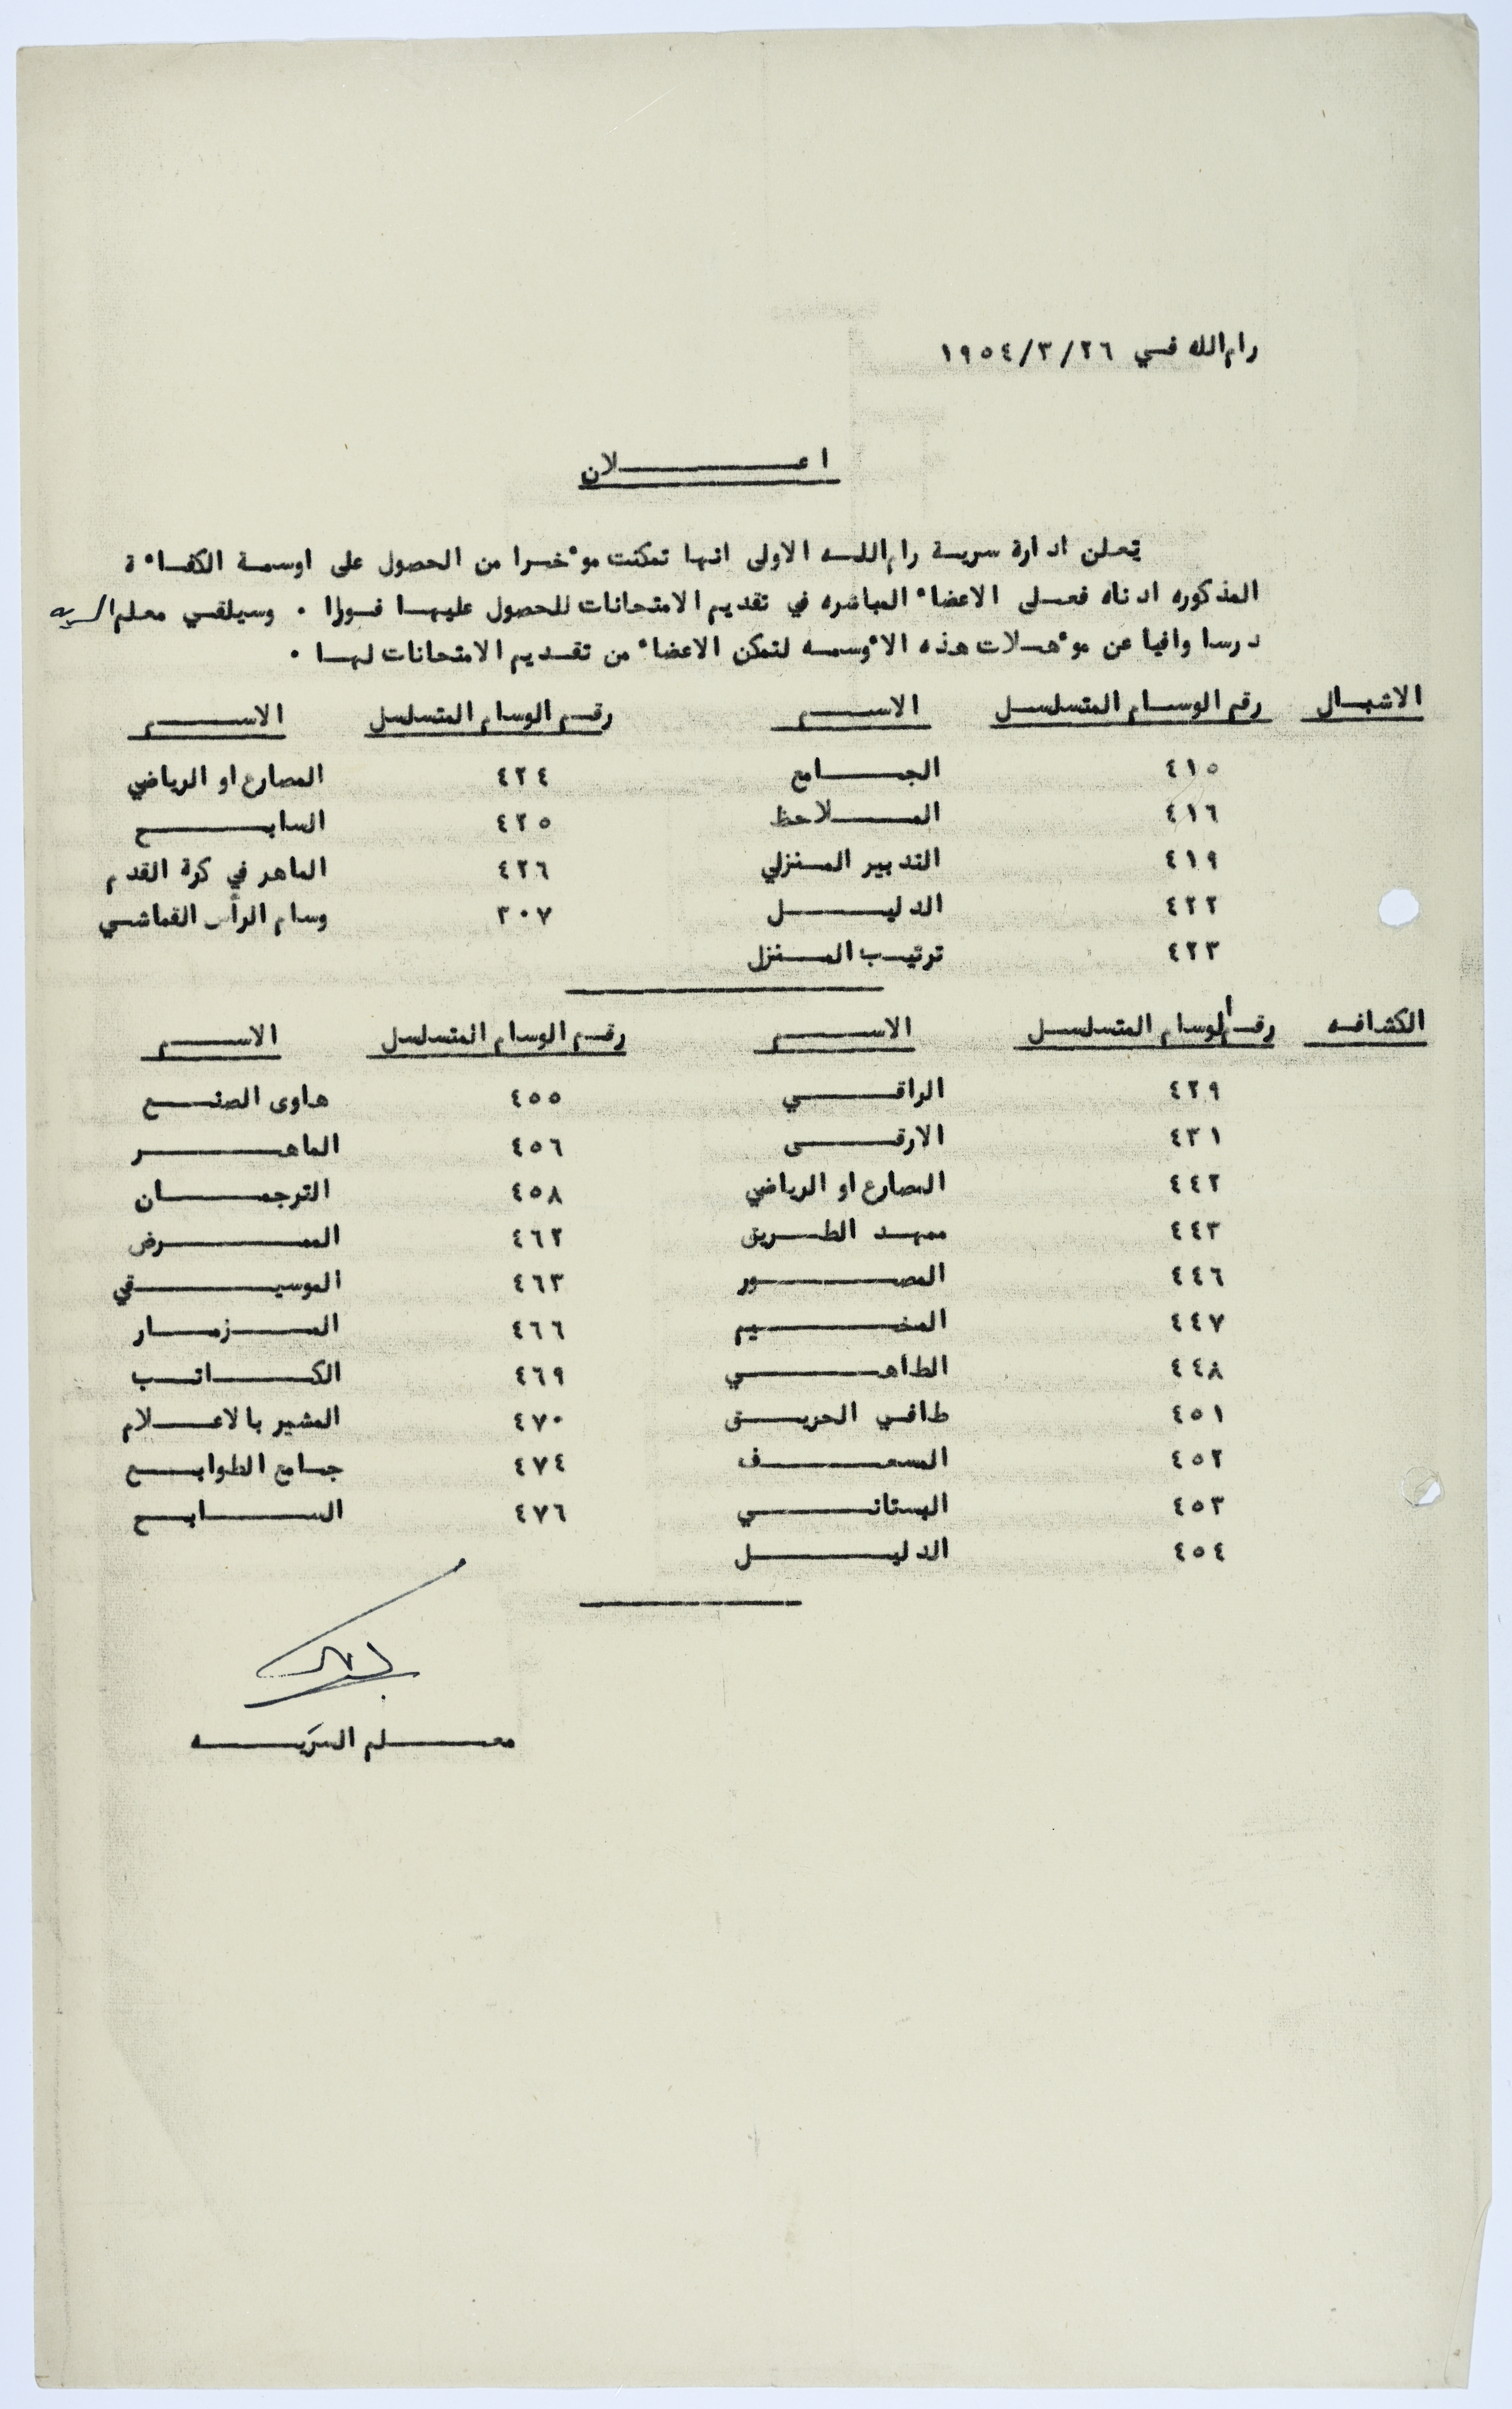 رام الله في ٢٦/٣/١٩٥٤
اعلان
تعلن ادارة سرية رام الله الاولى انها تمكنت موءخرا من الحصول على اوسمة الكفاءة
المذكوره ادناه فعلى الاعضاء المباشره في تقديم الامتحانات للحصول عليها فورا . وسيلقي معلم السريه
درسا وافيا عن موءهلات هذه الأوسمه لتمكن الاعضاء من تقديم الامتحانات لها .
الاشبال رقم الوسام المتسلسل الاسم رقم الوسام المتسلسل الاسم
٤١٥ الجامع ٤٢٤ المصارع او الرياضي
٤١٦ الملاحظ ٤٢٥ السابح
٤١٩ التدبير المنزلي ٤٢٦ الماهر في كرة القدم
٤٢٢ الدليل ٣٠٧ وسام الرأس القماشي
٤٢٣ ترتيب المنزل
الكشافه رقم الوسام المتسلسل الاسم رقم الوسام المتسلسل الاسم
٤٢٩ الراقي ٤٥٥ هاوى الصنع
٤٣١ الارقى ٤٥٦ الماهر
٤٤٢ المصارع او الرياضي ٤٥٨ الترجمان
٤٤٣ ممهد الطريق ٤٦٢ الممرض
٤٤٦ المصور ٤٦٣ الموسيقي
٤٤٧ المخيم ٤٦٦ المزمار
٤٤٨ الطاهي ٤٦٩ الكاتب
٤٥١ طافي الحريق ٤٧٠ المشير بالاعلام
٤٥٢ المسعف ٤٧٤ جامع الطوابع
٤٥٣ البستاني ٤٧٦ السابح
٤٥٤ الدليل
معلم السريه